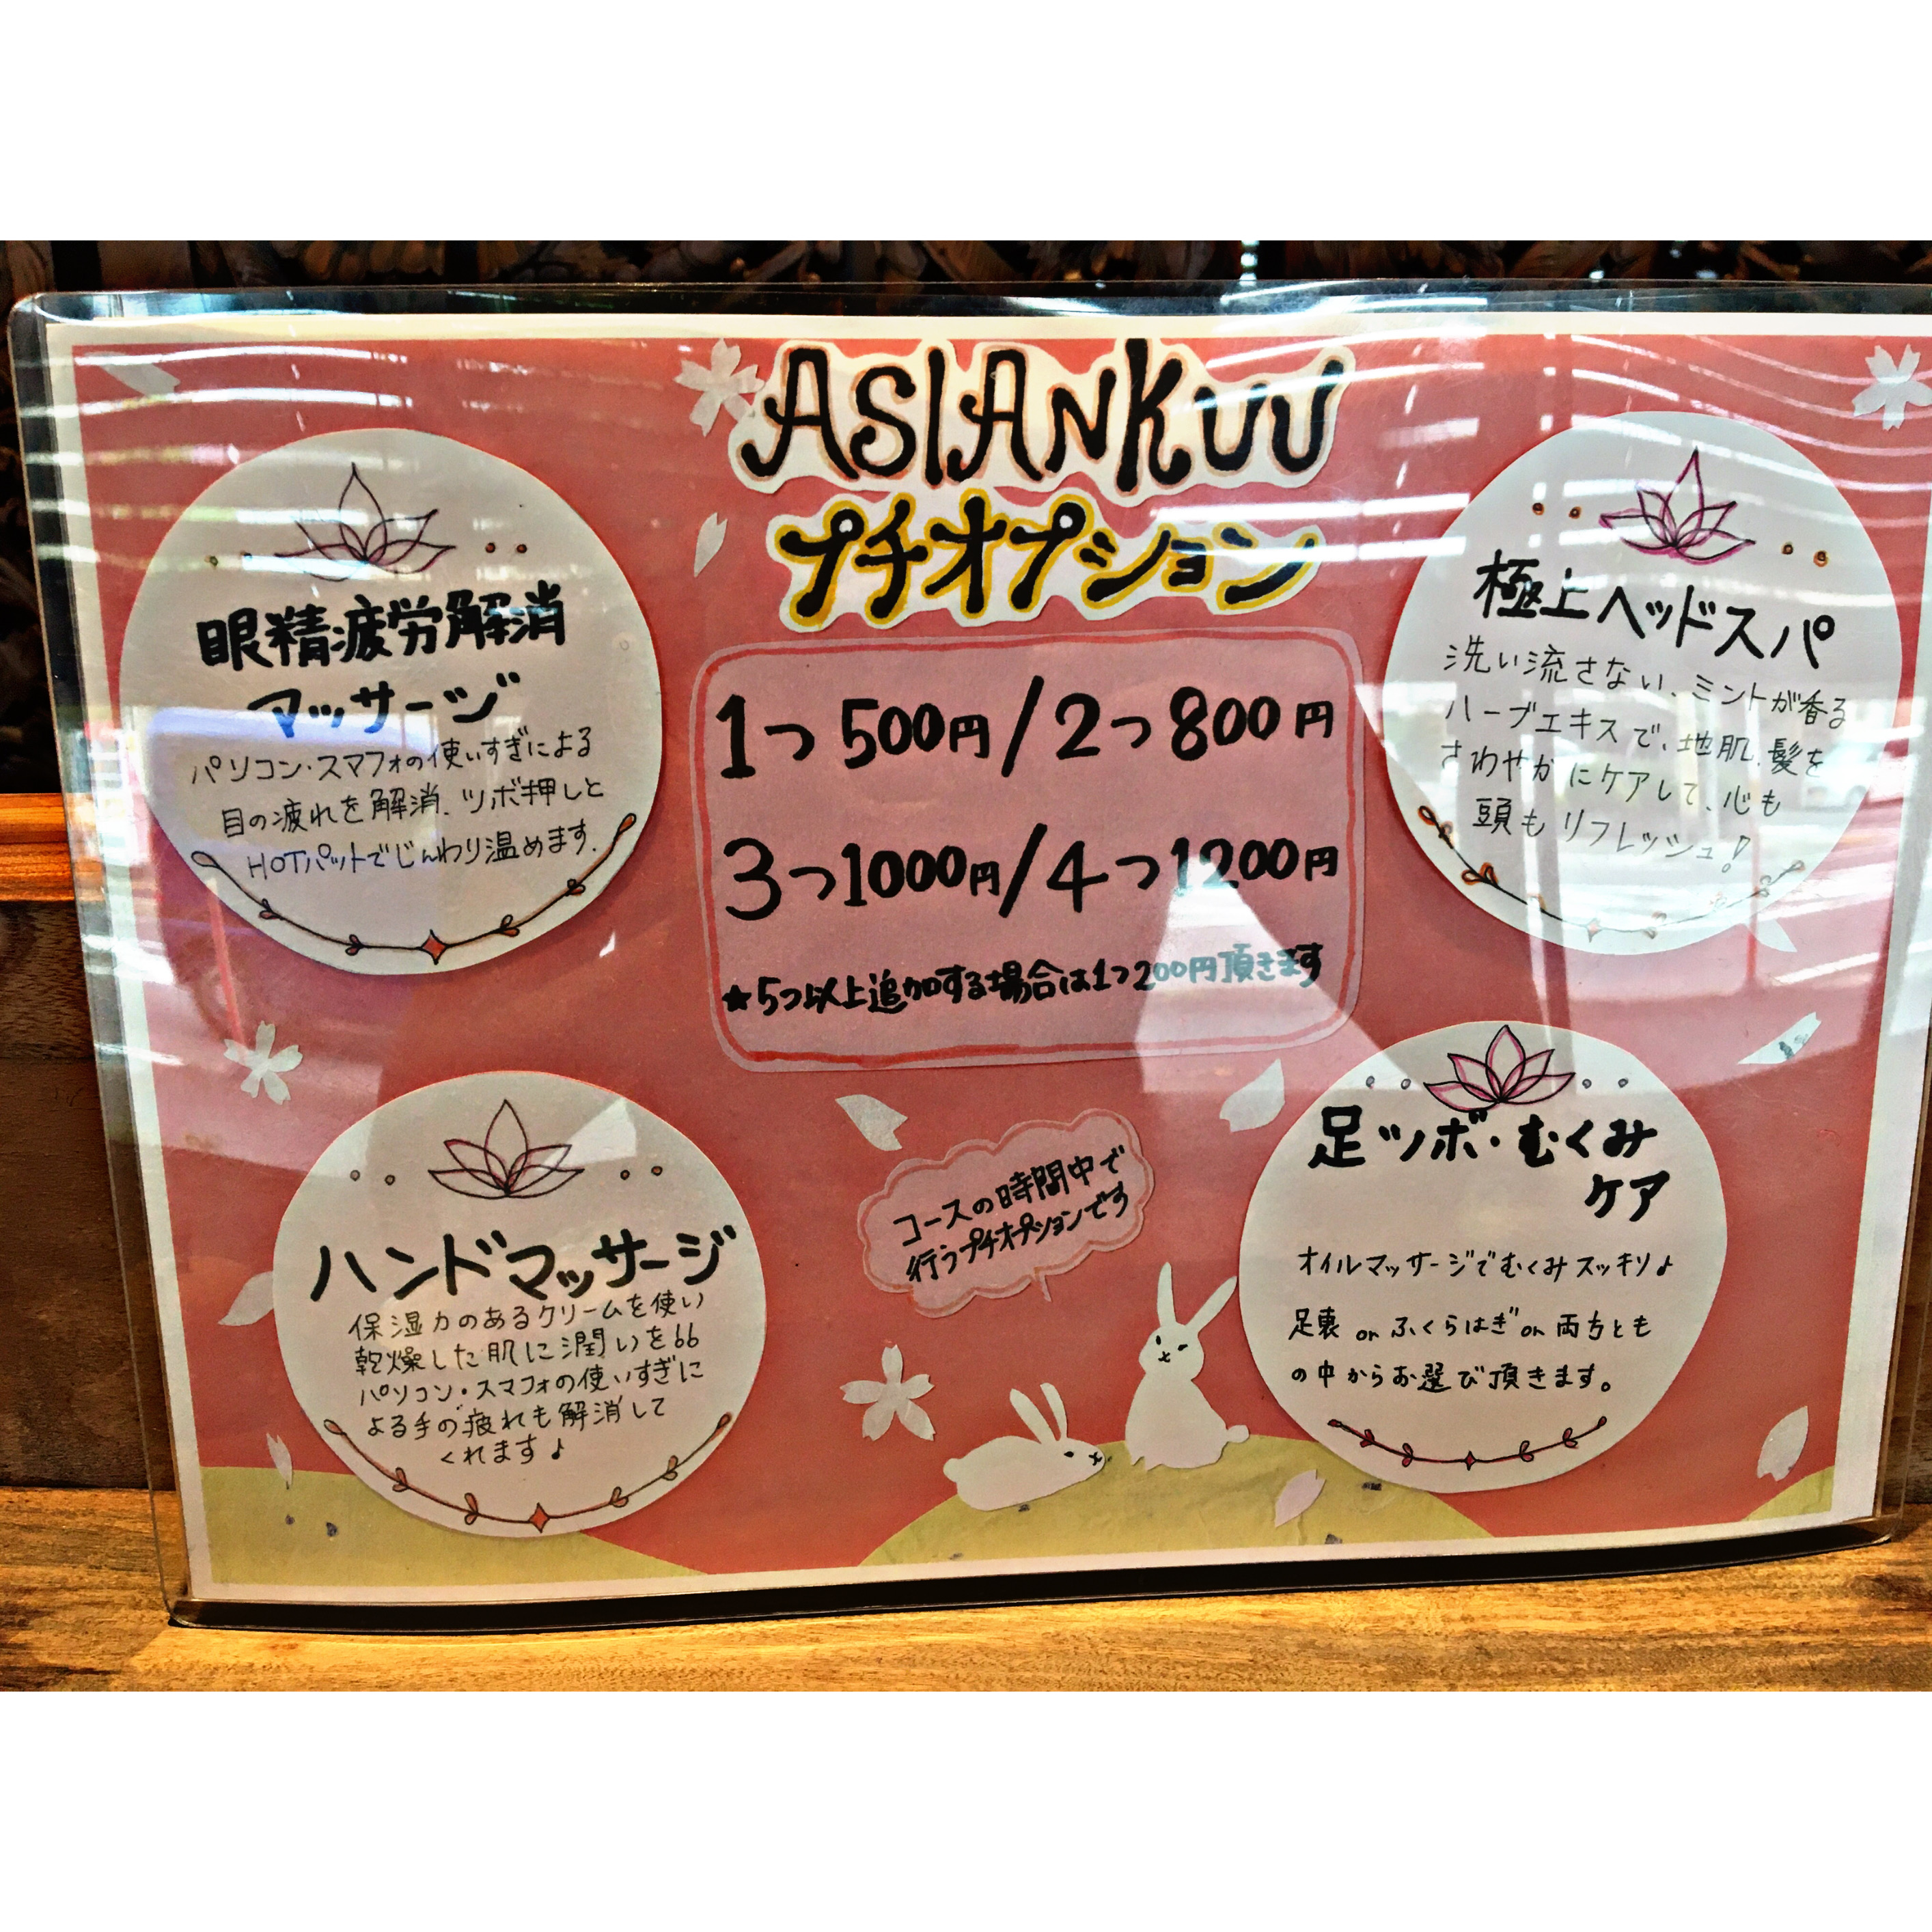 ASIANKUU
プチオプション
眼精疲労解消
マッサージ
パソコン・スマフォの使いすぎによる
目の疲れを解消、ツボ押しと
HOTパットでじんわり温めます.
1つ 500円/2つ800円
3つ1000円/4つ1200円
★5つ以上追加する場合は1つ200円頂きます
極上ヘッドスパ
洗い流さない、ミントが香る
ハーブエキスで、地肌、髪を
さわやかにケアして、心も
頭もリフレッシュ!
ハンドマッサージ
保湿力のあるクリームを使い
乾燥した肌に潤いを66
パソコン・スマフォの使いすぎに
よる手の疲れも解消して
くれます♪
コースの時間中で
行うプチオプションです
足ツボ・むくみ
ケア
オイルマッサージでむくみスッキリ♪
足裏 or ふくらはぎ or 両方とも
の中からお選び頂きます。